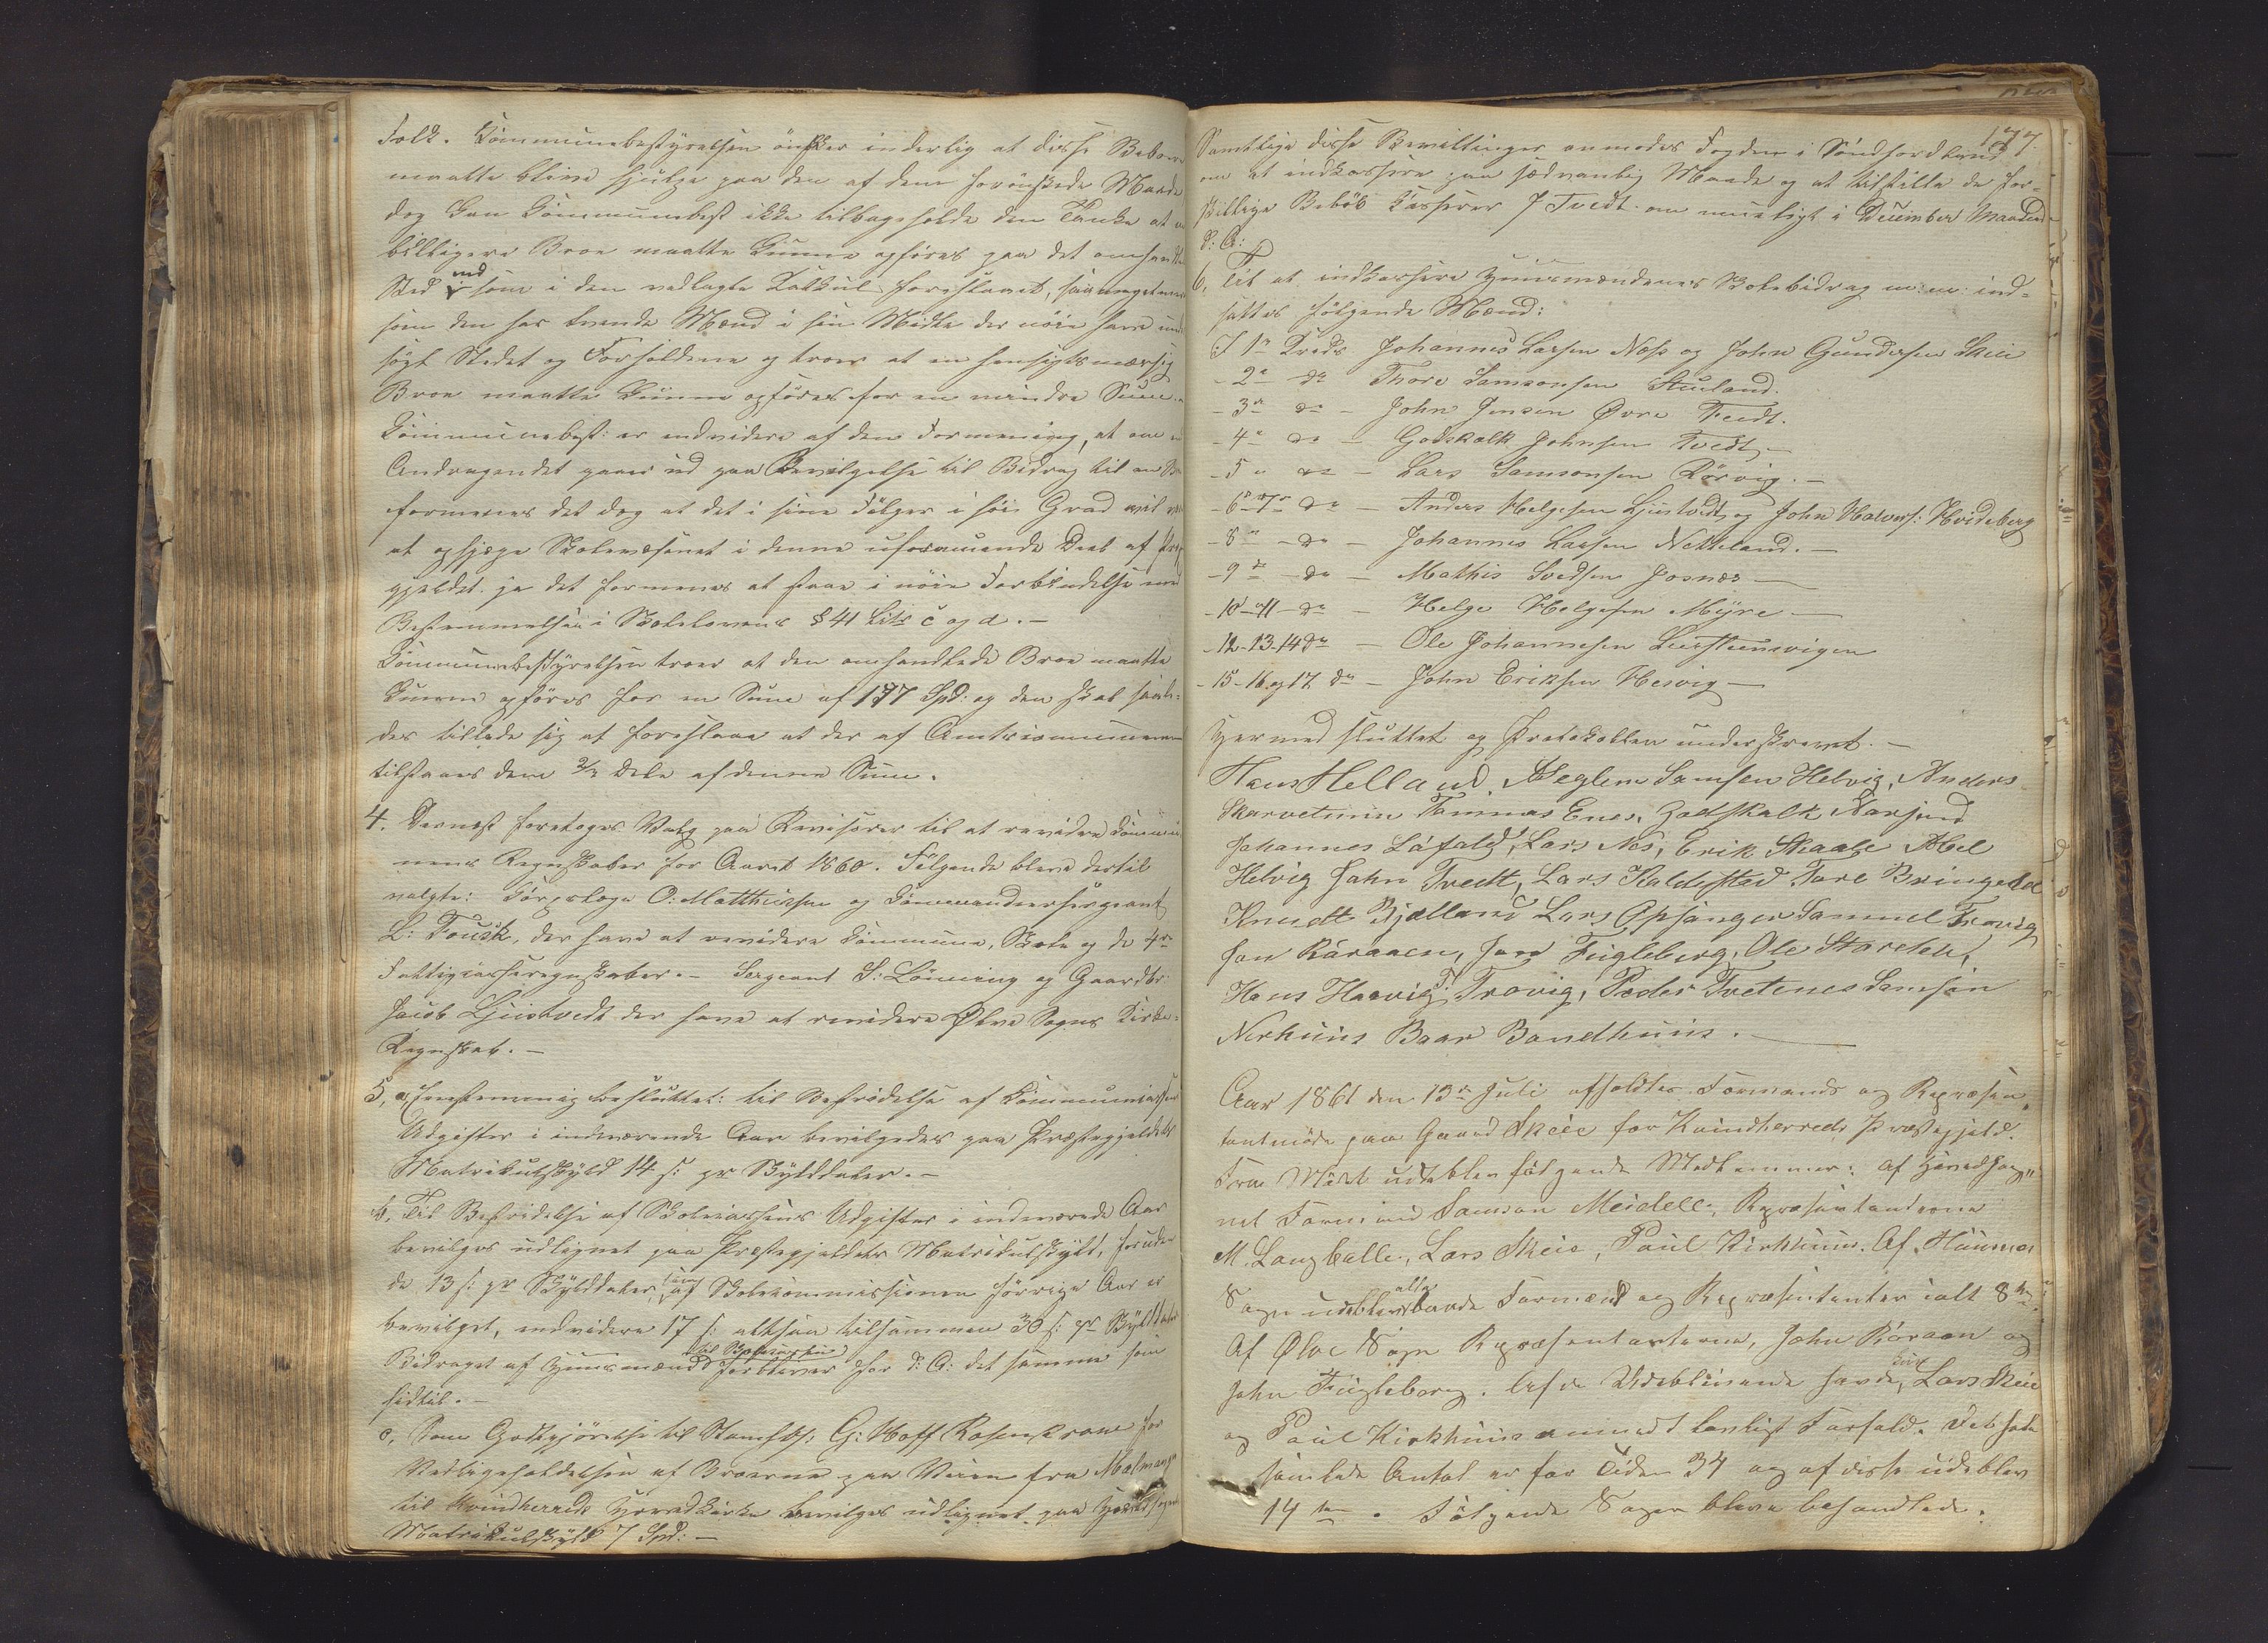 Folk. Communebestyrelsen ønsker inderlig at disse Beboere
maatte blive hjulpe paa den af dem forønskede Maade
dog kan Communebest ikke tilbageholde den Tanke at en
billigere Broe maatte kunne opføres paa det omhandlede
Sted end som i den vedlagte Kalkul foreslaaet, saa meget mere
som den har tvende Mænd i sin Midte der nøie have under
søgt Stedet og Forholdene og troer at en hensigtsmæssig
Broe maatte kunne opføres for en mindre Sum.
Communebest: er endvidere af den Formening, at om end
Andragendet gaaer ud paa Bevilgelse til Bidrag til en Bro
formenes det dog at det i sine Følger i høi Grad vil være
at ophjælpe Skolevæsenet i denne uformuende Deel af Præste
gjeldet. ja det formenes at staae i nøie Forbindelse med
Bestemmelsen i Skolelovens § 41 Litr c og d. -
Communebestyrelsen troer at den omhandlede Broe maatte
kunne opføres for en Sum af 177 Spd: og den skal saale-
des tillade sig at foreslaae at der af Amtscommunen
tilstaaes dem 2/3 Dele af denne Sum.
4. Dernæst foretoges Valg paa Revisorer til at revidere Commu-
nens Regnskaber for Aaret 1860. Følgende bleve dertil
valgte: Corpslæge O: Matthiesen og Commandeersergeant
L: Fousk, der have at revidere Commune, Skole og de 4re
Fattigcasseregnskaber. - Sergeant S: Lönning og Gaardbr:
Jacob Ljustvedt der have at revidere Ølve Sogns Kirke-
Regnskab. -
5, a, Eenstemmig besluttet: til Bestridelse af Communecassens
Udgifter i indeværende Aar bevilgedes paa Præstegjeldets
Matrikulskyld 14 s: pr Skylddaler. -
b, Til Bestridelse af Skolecassens Udgifter i indeværende Aar
bevilges udlignet paa Præstegjeldets Matrikulskyld, foruden
de 13 s: pr Skylddaler, som af Skolecommissionen forrige Aar er
bevilget, endvidere 17 s: altsaa tilsammen 30 s: pr Skylddaler
Bidraget af Huusmænd til Skolecassen forbliver for d: A: det samme som
hidtil. -
c, Som Godtgjørelse til Stamhb: G: Hoff Rosenkrone for
Vedligeholdelsen af Broerne paa Veien fra Malmanger
til Kvindherreds Hovedkirke bevilges udlignet paa Hovedsognets
Matrikulskyld 7 Spd: -
177.
Samtlige disse Bevillinger anmodes Fogden i Søndhordland
om at indkassere paa sædvanlig Maade og at tilstille de for-
skjellige Beløb Kasserer J Tvedt om mueligt i December Maaned
d: A:
6, Til at indkassere Huusmændenes Skolebidrag m: m: ind-
sattes følgende Mænd:
I 1e Kreds Johannes Larsen Næss og John Gundersen Skeie
- 2e - do Thore Samsonsen Stuland.
- 3e do - John Jensen Øvre Tvedt.
- 4e do - Godskalk Johnsen Tvedt -
- 5e do - Lars Samsonsen Rörvig. -
- 6e - 7e do - Anders Helgesen Ljustvedt og John Halvors: Hvideberg
- 8e - do - Johannes Larsen Netteland. -
- 9e - do - Mathis Iversen Josnæs -
- 10 og 11 - do - Helge Helgesen Myre -
- 12 - 13 - 14 do - Ole Johannesen Leersteensvigen
- 15 - 16 og 17 do - John Eriksen Hesvig -
Hermed sluttet og Protokollen underskrevet. -
Hans Helland, A Seglem Samson Helvig, Anders
Skarvetunn Tommas Enes, Godskalk Naterstad
Johannes Lafald, Lars Nes, Erik Skaale Abel
Helvig John Tvedt, Lars Kaldestad Tore Bringedal
Knudt Bjelland Lars Opsanger Samuel Trovig
Jon Raraaen, Jon Fugleberg, Ole Storeteen,
Hans Haavig T. Trovig, Peder Tvetenes Samson
Nerhuus Baar Bondhuus.
Aar 1861 den 13de Juli afholdtes Formands og Repræsen-
tantmøde paa Gaard Skeie for Kvindherreds Præstegjeld.
Fra Mødet udebleve følgende Medlemmer: af Hovedsog-
net Formand Samson Meidell, Repræsentanterne
M. Langballe, Lars Skeie, Paul Kirkhuus. Af Huuma
Sogn udebleve alle baade Formænd og Repræsentanter ialt 8te.
Af Ølve Sogn Repræsentanterne, John Raraaen og
John Fugleberg. Af de Udeblivende havde kun Lars Skeie
og Paul Kirkhuus anmeldt lovligt Forfald. Det hele
samlede Antal er for Tiden 34 og af disse udeblev
14ten. Følgende Sager bleve behandlede: